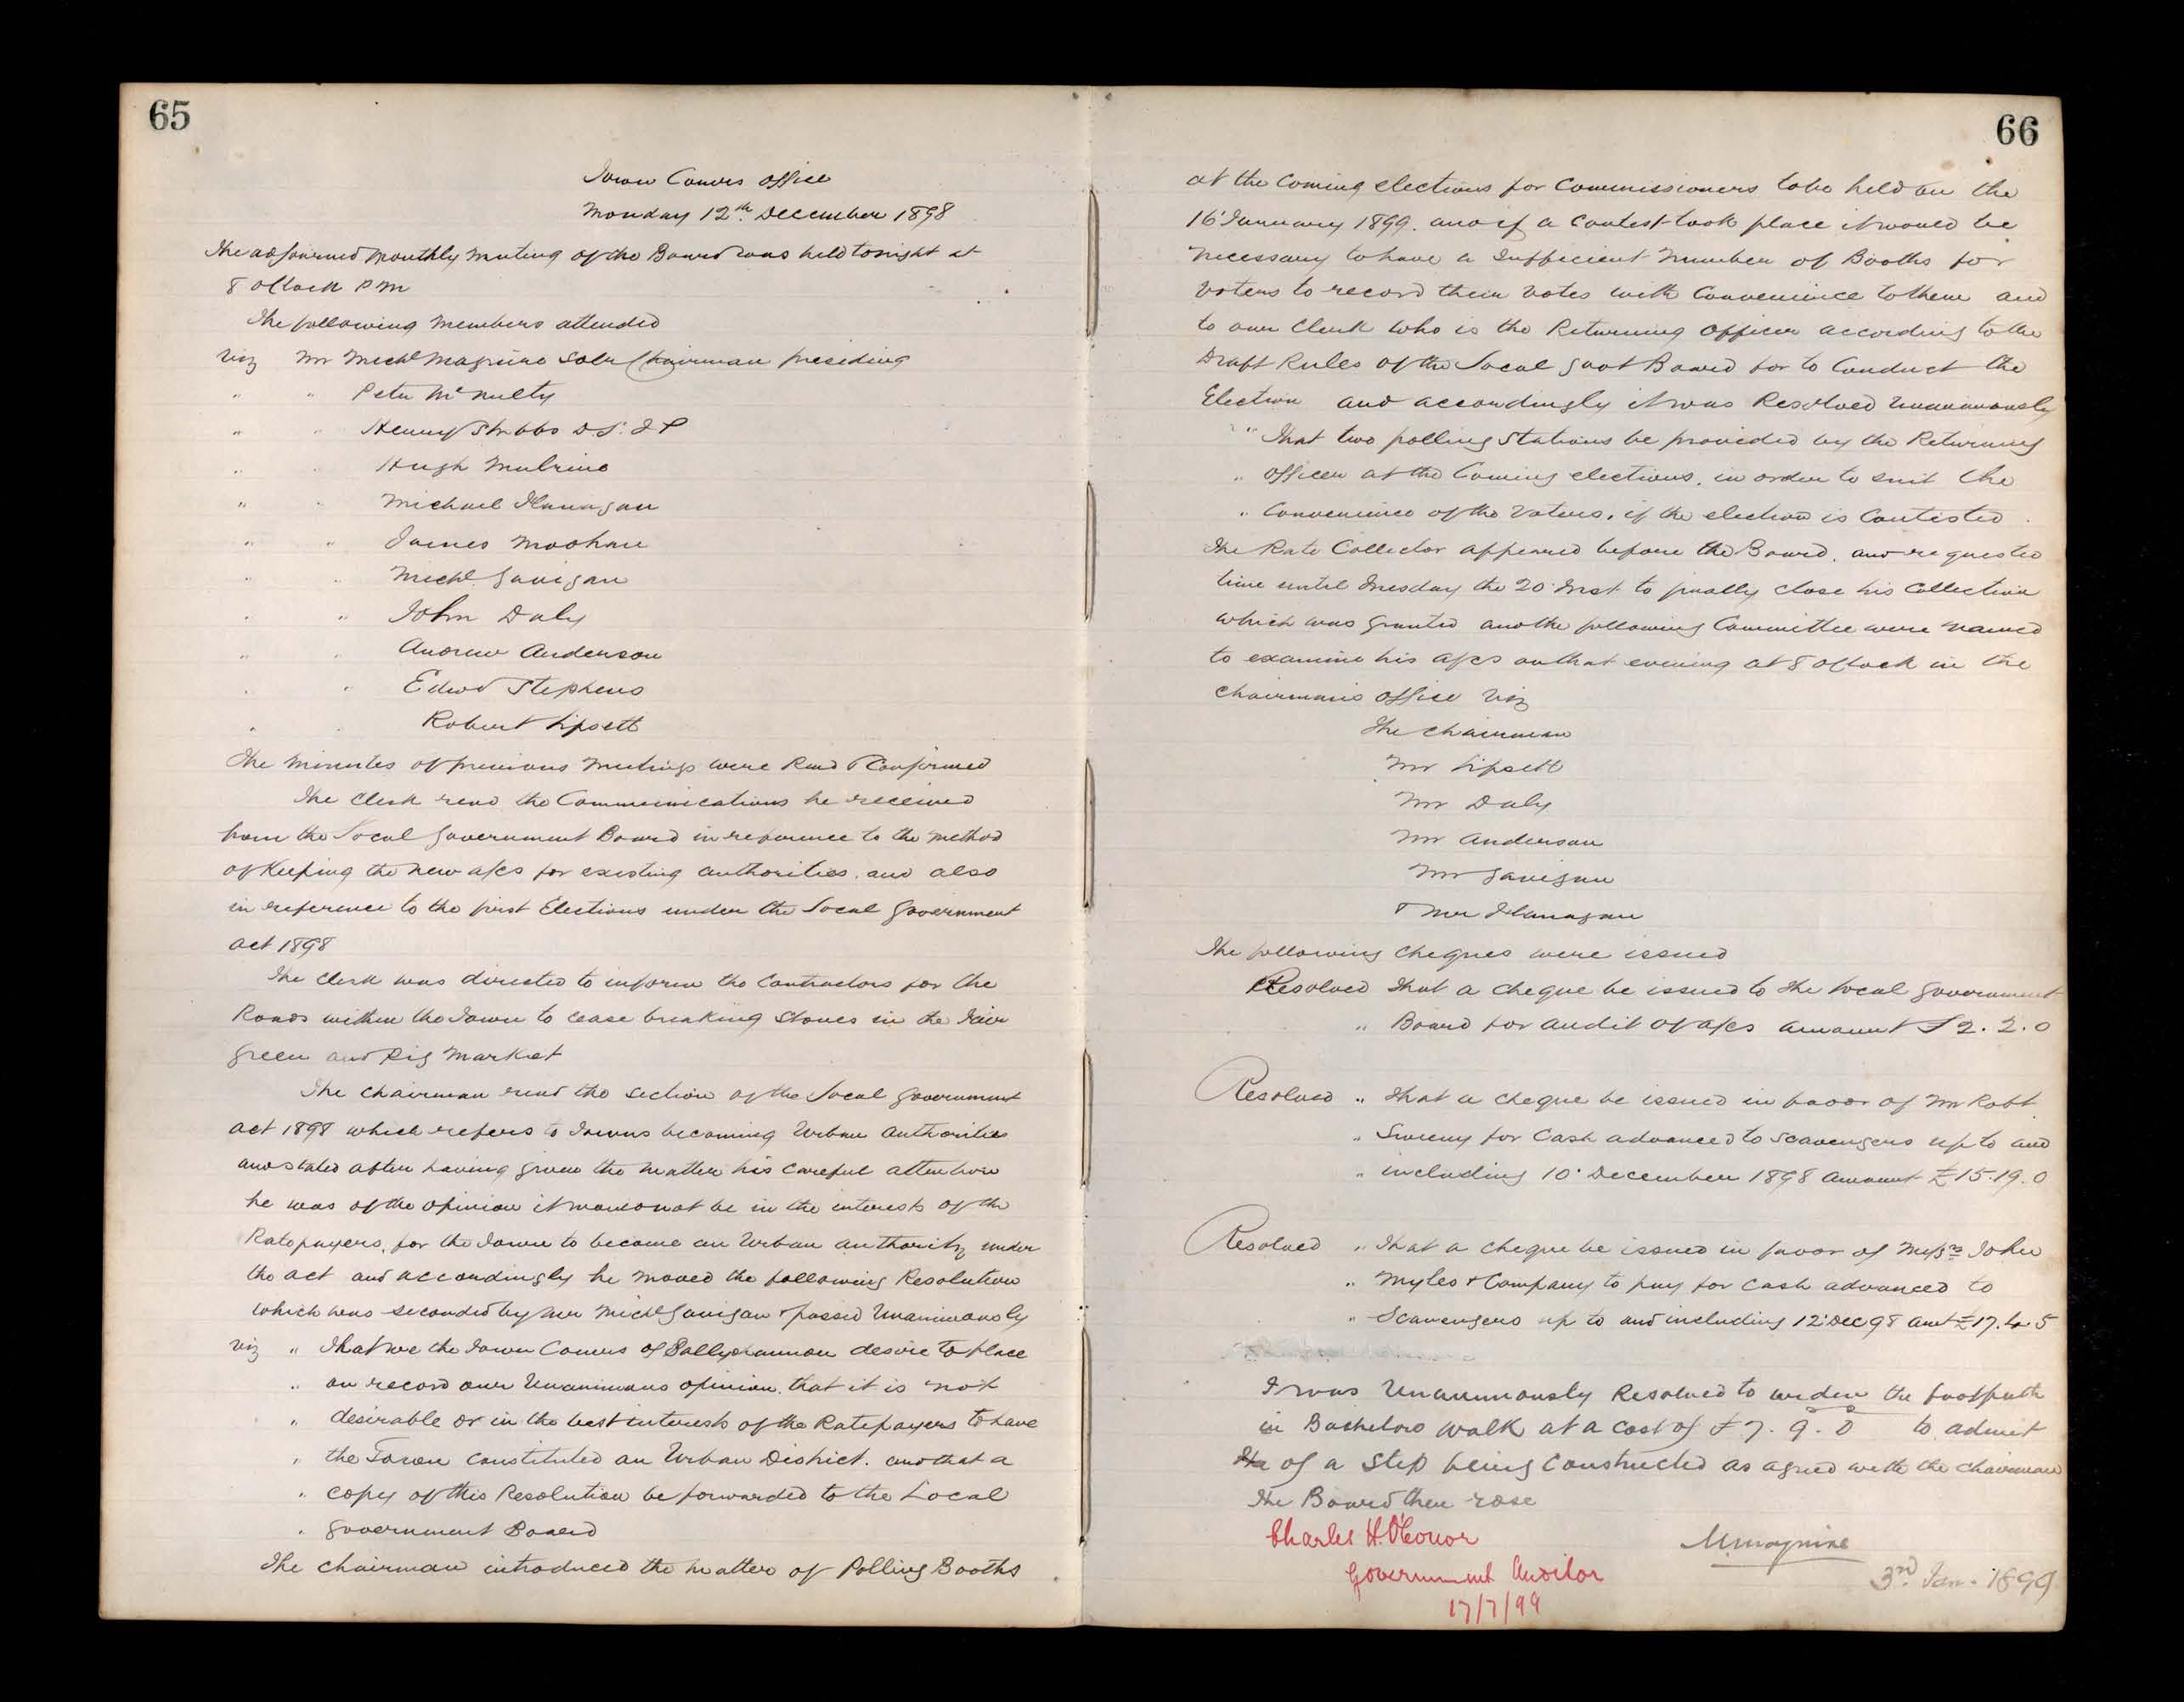 65
Town Comrs Office
Monday 12th December 1898
The adjourned Monthly Meeting of the Board was held tonight at
8 oClock P M
The following Members attended
Viz Mr Michl Maguire Solr Chairman presiding
" " Peter McNulty
" " Henry Stubbs D.L. J P
" " Hugh Mulrine
" " Michael Flanagan
" " James Moohan
" " Michl Gavigan
" " John Daly
" " Andrew Anderson
" " Edwd Stephens
" " Robert Lipsett
The Minutes of previous Meetings were Read & Confirmed
The Clerk read the Communications he received
from the Local Government Board in reference to the Method
of Keeping the new a/cs for existing authorities. and also
in reference to the first Elections under the Local Government
Act 1898
The Clerk was directed to inform the Contractors for the
Roads within the Town to cease breaking Stones in the Fair
Green and Pig Market
The Chairman read the section of the Local Government
Act 1898 which refers to Towns becoming Urban Authorities
and stated after having given the matter his careful attention
he was of the opinion it would not be in the interests of the
Ratepayers, for the Town to become an Urban Authority under
the Act and accordingly he moved the following Resolution
which was seconded by Mr Michl Gavigan & passed Unanimously
Viz " That we the Town Comrs of Ballyshannon desire to place
" on record our Unanimous opinion. that it is not
" desirable or in the best interests of the Ratepayers to have
" the Town Constituted an Urban District. and that a
" copy of this Resolution be forwarded to the Local
" Government Board
The Chairman introduced the matter of Polling Booths
66
at the Coming elections for Commissioners to be held on the
16' January 1899. and if a Contest took place it would be
necessary to have a Sufficient Number of Booths for
Voters to record their Votes with Convenience to them and
to our Clerk who is the Returning Officer according to the
Draft Rules of the Local Govt Board for to Conduct the
Election and accordingly it was Resolved Unanimously
" That two polling Stations be provided by the Returning
" Officer at the Coming elections, in order to suit the
" Convenience of the Voters, if the election is Contested.
The Rate Collector appeared before the Board. and requested
time until Tuesday the 20' Inst to finally close his Collection
which was Granted and the following Committee were Named
to examine his a/cs on that evening at 8 oClock in the
Chairmans Office Viz
The Chairman
Mr Lipsett
Mr Daly
Mr Anderson
Mr Gavigan
& Mr Flanagan
The following Cheques were issued
Resolved That a Cheque be issued to the Local Government
" Board for audit of a/cs amount £2.2.0
Resolved " That a Cheque be issued in favor of Mr Robt
" Sweeny for Cash advanced to Scavengers up to and
" including 10' December 1898 Amount £15.19.0
Resolved " That a Cheque be issued in favor of Messrs John
" Myles & Company to pay for Cash advanced to
" Scavengers up to and including 12' Dec 98 amt £17.4.5
I was Unanimously Resolved to widen the footpath
in Bachelors Walk at a Cost of £7.9.0 to admit
of a Step being Constructed as agreed with the Chairman
The Board then rose
Charles H. O'Conor
Government Auditor
17/7/99
M Maguire
3rd Jan. 1899